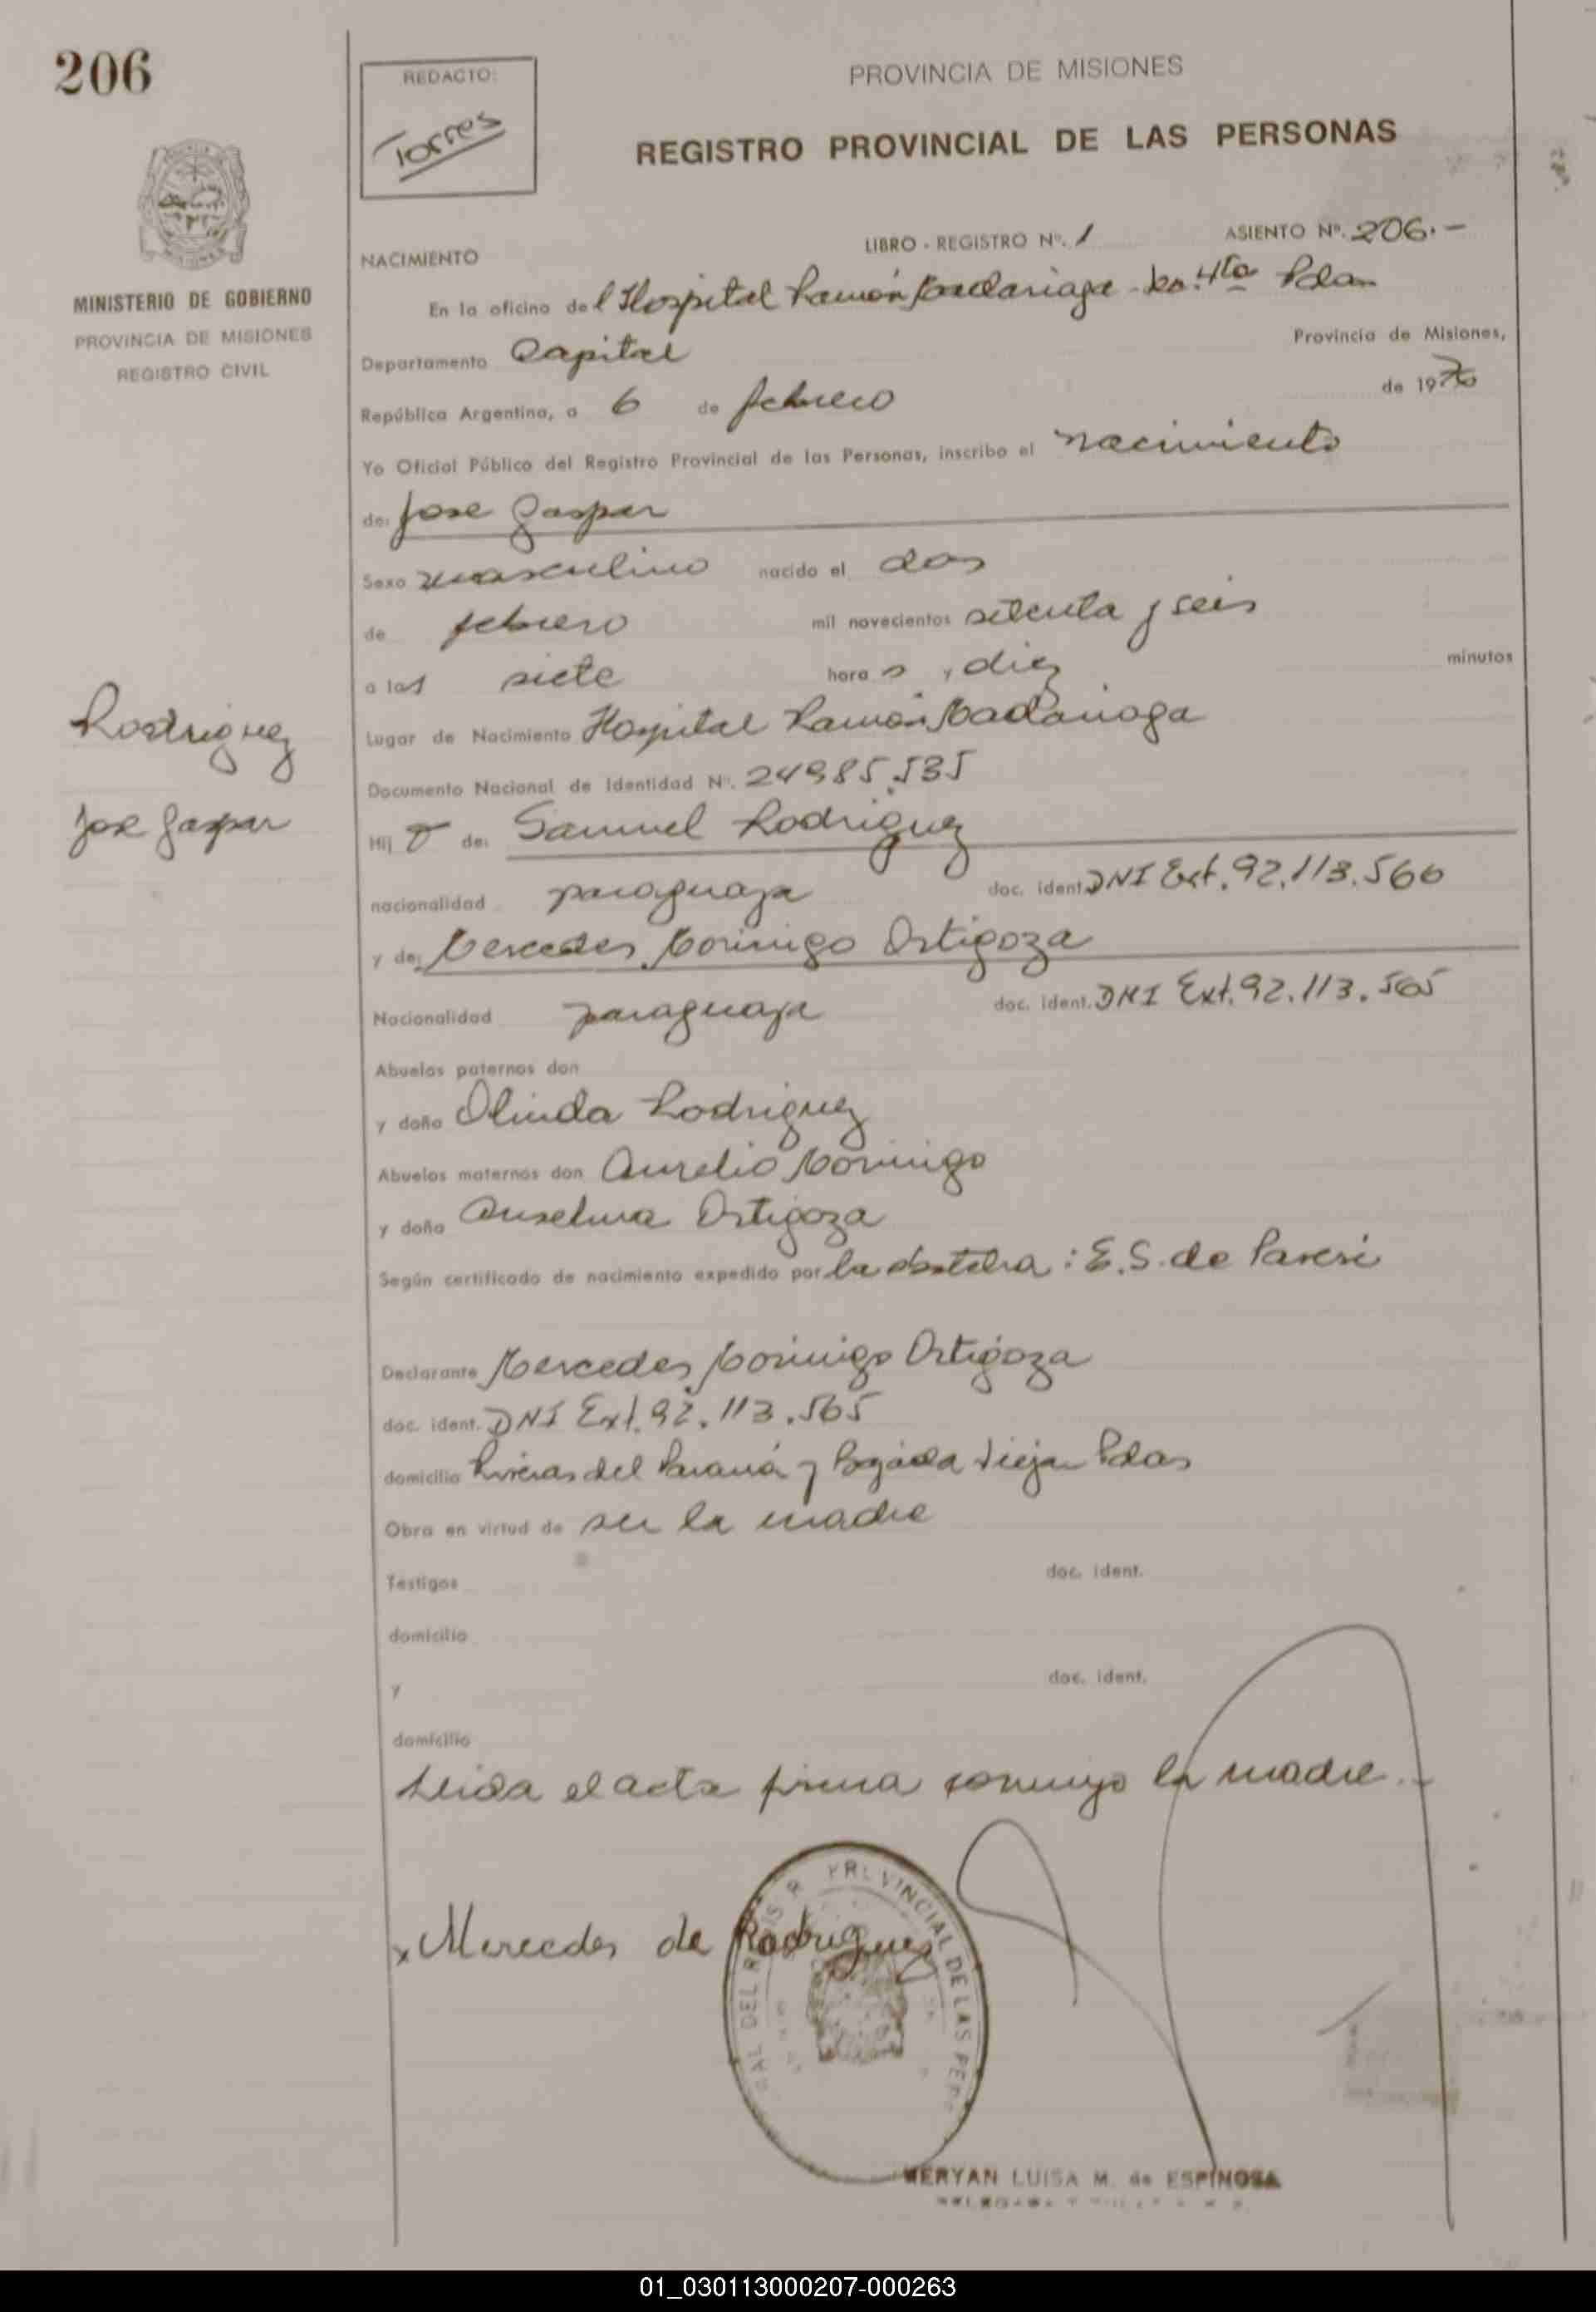 206
REDACTO:
Torres
PROVINCIA DE MISIONES
REGISTRO PROVINCIAL DE LAS PERSONAS
MINISTERIO DE GOBIERNO
PROVINCIA DE MISIONES
REGISTRO CIVIL
NACIMIENTO LIBRO - REGISTRO Nº. 1 ASIENTO Nº. 206.-
En la oficina del Hospital Ramón Madariaga - 4ta Pdas
Departamento Capital Provincia de Misiones,
República Argentina, a 6 de febrero de 1976
Yo Oficial Público del Registro Provincial de las Personas, inscribo el nacimiento
de: Jose Gaspar
Sexo masculino nacido el dos
de febrero mil novecientos setenta y seis
a las siete horas y diez minutos
Rodriguez
Jose Gaspar
Lugar de Nacimiento Hospital Ramón Madariaga
Documento Nacional de Identidad Nº. 24985.535
Hijo de: Samuel Rodriguez
nacionalidad paraguaya doc. ident. DNI Ext. 92.113.566
y de: Mercedes Morinigo Ortigoza
Nacionalidad paraguaya doc. ident. DNI Ext. 92.113.565
Abuelos paternos don
y doña Olinda Rodriguez
Abuelos maternos don Aurelio Morinigo
y doña Anselma Ortigoza
Según certificado de nacimiento expedido por la obstetra : E.S. de Paresi
Declarante Mercedes Morinigo Ortigoza
doc. ident. DNI Ext. 92.113.565
domicilio Rivieras del Paraná y Bajada Vieja Pdas
Obra en virtud de ser la madre
Testigos doc. ident.
domicilio
y doc. ident.
domicilio
Leida el acta firma conmigo la madre.-
x Mercedes de Rodriguez
PROVINCIAL DE LAS PER
MERYAN LUISA M. de ESPINOSA
01_030113000207-000263